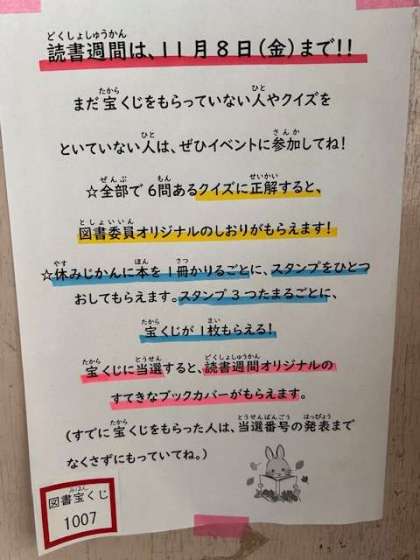 読書週間は、11月8日(金)まで!!
まだ宝くじをもらっていない人やクイズを
といていない人は、ぜひイベントに参加してね!
☆全部で6問あるクイズに正解すると、
図書委員オリジナルのしおりがもらえます!
☆休みじかんに本を1冊かりるごとに、スタンプをひとつ
おしてもらえます。スタンプ3つたまるごとに、
宝くじが1枚もらえる!
宝くじに当選すると、読書週間オリジナルの
すてきなブックカバーがもらえます。
(すでに宝くじをもらった人は、当選番号の発表まで
なくさずにもっていてね。)
図書宝くじ
1007